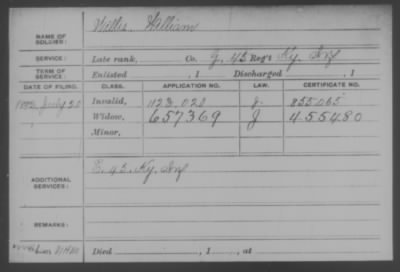 NAME OF SOLDIER: Willis, William
SERVICE: Late rank, Co. G, 45 Reg't Ky. Inf
TERM OF SERVICE: Enlisted , 1 Discharged , 1
DATE OF FILING. CLASS. APPLICATION NO. LAW. CERTIFICATE NO.
1892, July 20 Invalid, 1123.020 J. 855.065
Widow, 657369 J 455480
Minor,
ADDITIONAL SERVICES: E. 45. Ky. Inf
REMARKS:
Died , 1 , at